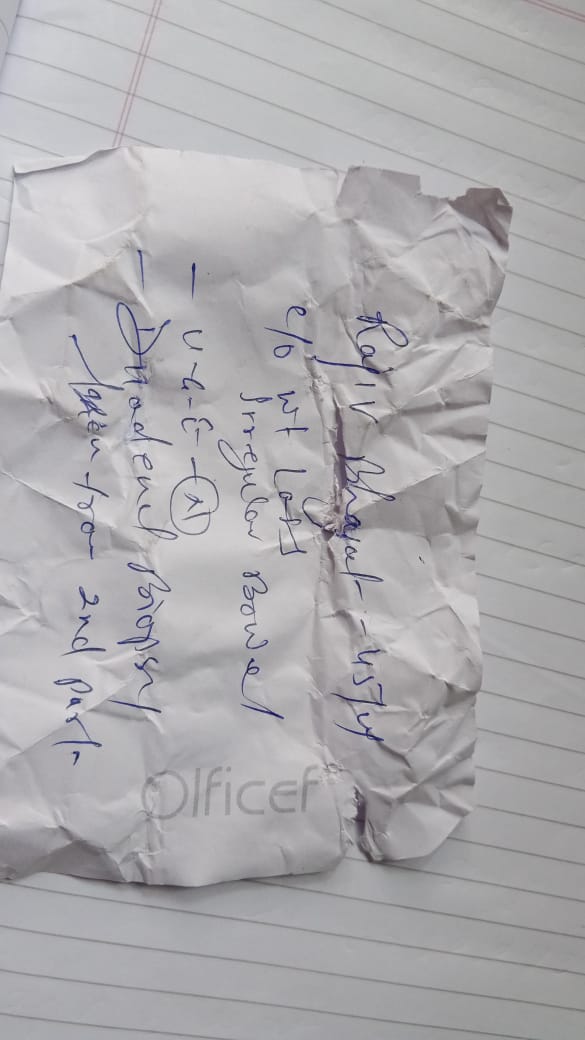 Rajiv Bhagat - 45/M
c/o wt loss
Irregular Bowel
- U-G-E- (N)
- Duodenal Biopsy
taken from 2nd Part.
Olficef